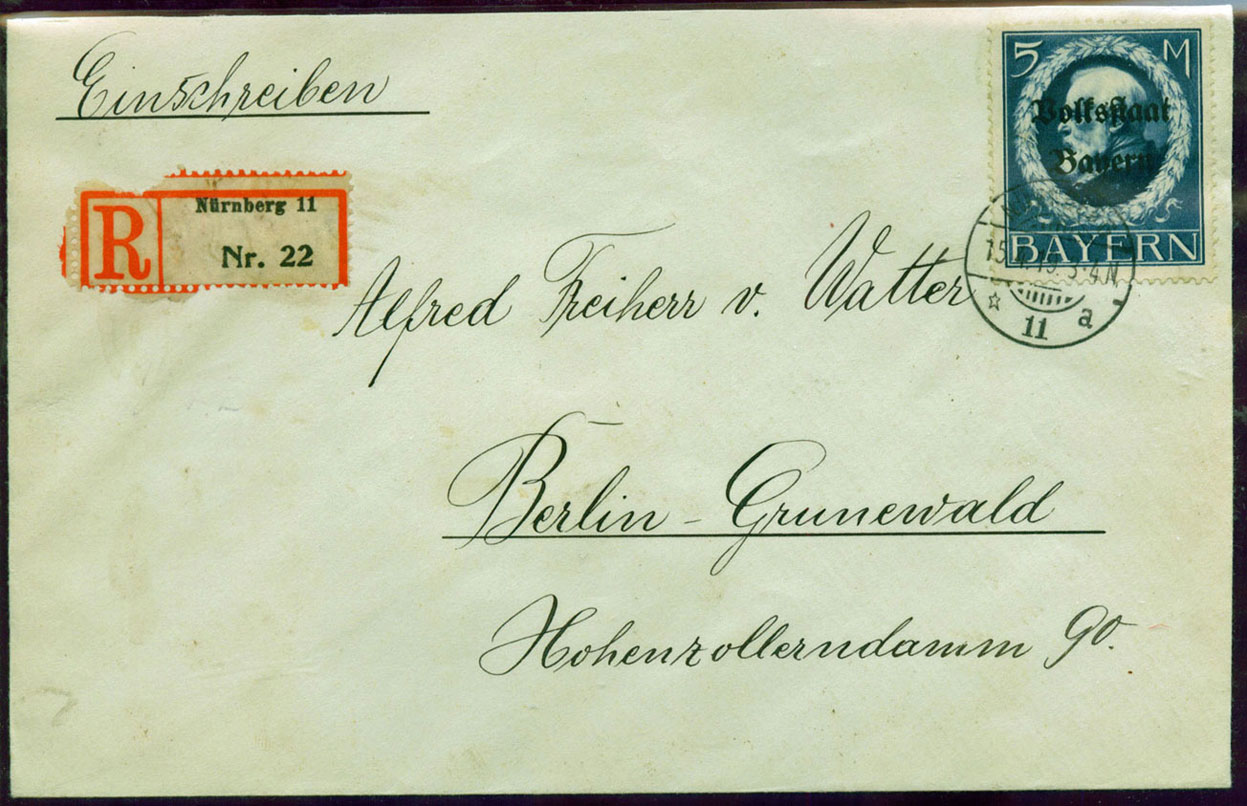 Einschreiben
5 M
Volksstaat
Bayern
BAYERN
R
Nürnberg 11
Nr. 22
11 a
Alfred Freiherr v. Watter
Berlin - Grunewald
Hohenzollerndamm 90.